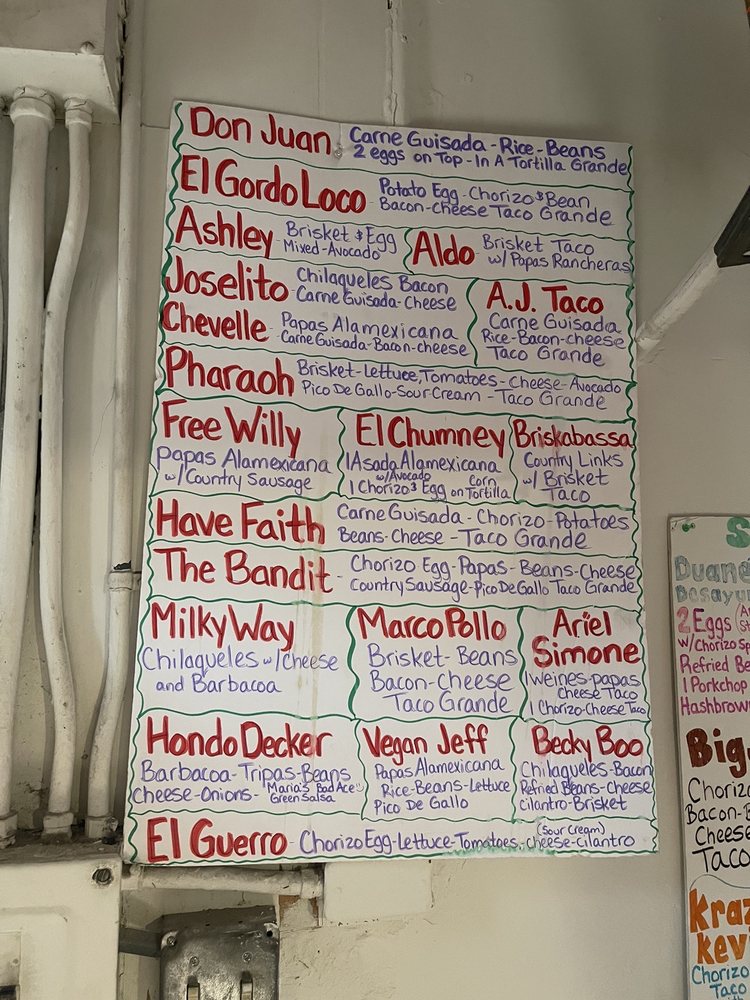 Don Juan
Carne Guisada - Rice - Beans
2 eggs on Top - In A Tortilla Grande
El Gordo Loco
Potato Egg - Chorizo $ Bean
Bacon - Cheese Taco Grande
Ashley
Brisket $ Egg
Mixed - Avocado
Aldo
Brisket Taco
w/ Papas Rancheras
Joselito
Chilaqueles Bacon
Carne Guisada - Cheese
Chevelle
Papas Alamexicana
Carne Guisada - Bacon - cheese
A.J. Taco
Carne Guisada
Rice - Bacon - cheese
Taco Grande
Pharaoh
Brisket - Lettuce, Tomatoes - Cheese - Avocado
Pico De Gallo - Sour Cream - Taco Grande
Free Willy
Papas Alamexicana
w/ Country Sausage
El Chumney
1 Asada Alamexicana
w/ Avocado
1 Chorizo $ Egg on Corn Tortilla
Briskabassa
Country Links
w/ Brisket
Taco
Have Faith
Carne Guisada - Chorizo - Potatoes
Beans - Cheese - Taco Grande
The Bandit
Chorizo Egg - Papas - Beans - Cheese
Country Sausage - Pico De Gallo Taco Grande
Milky Way
Chilaqueles w/ Cheese
and Barbacoa
Marco Pollo
Brisket - Beans
Bacon - Cheese
Taco Grande
Ariel
Simone
1 weines - papas
cheese Taco
1 Chorizo - Cheese Taco
Hondo Decker
Barbacoa - Tripas - Beans
Cheese - Onions - Maria's Bad Ace
Green Salsa
Vegan Jeff
Papas Alamexicana
Rice - Beans - Lettuce
Pico De Gallo
Becky Boo
Chilaqueles - Bacon
Refried Beans - Cheese
cilantro - Brisket
El Guerro
(Sour Cream)
Chorizo Egg - Lettuce - Tomatoes - cheese - cilantro
S
Duand
Desayu
2 Eggs
w/ Chorizo Sp
Refried Be
1 Porkchop
Hashbrow
Big
Chorizo
Bacon - B
Cheese
Taco
Kraz
Kev
Chorizo
Taco